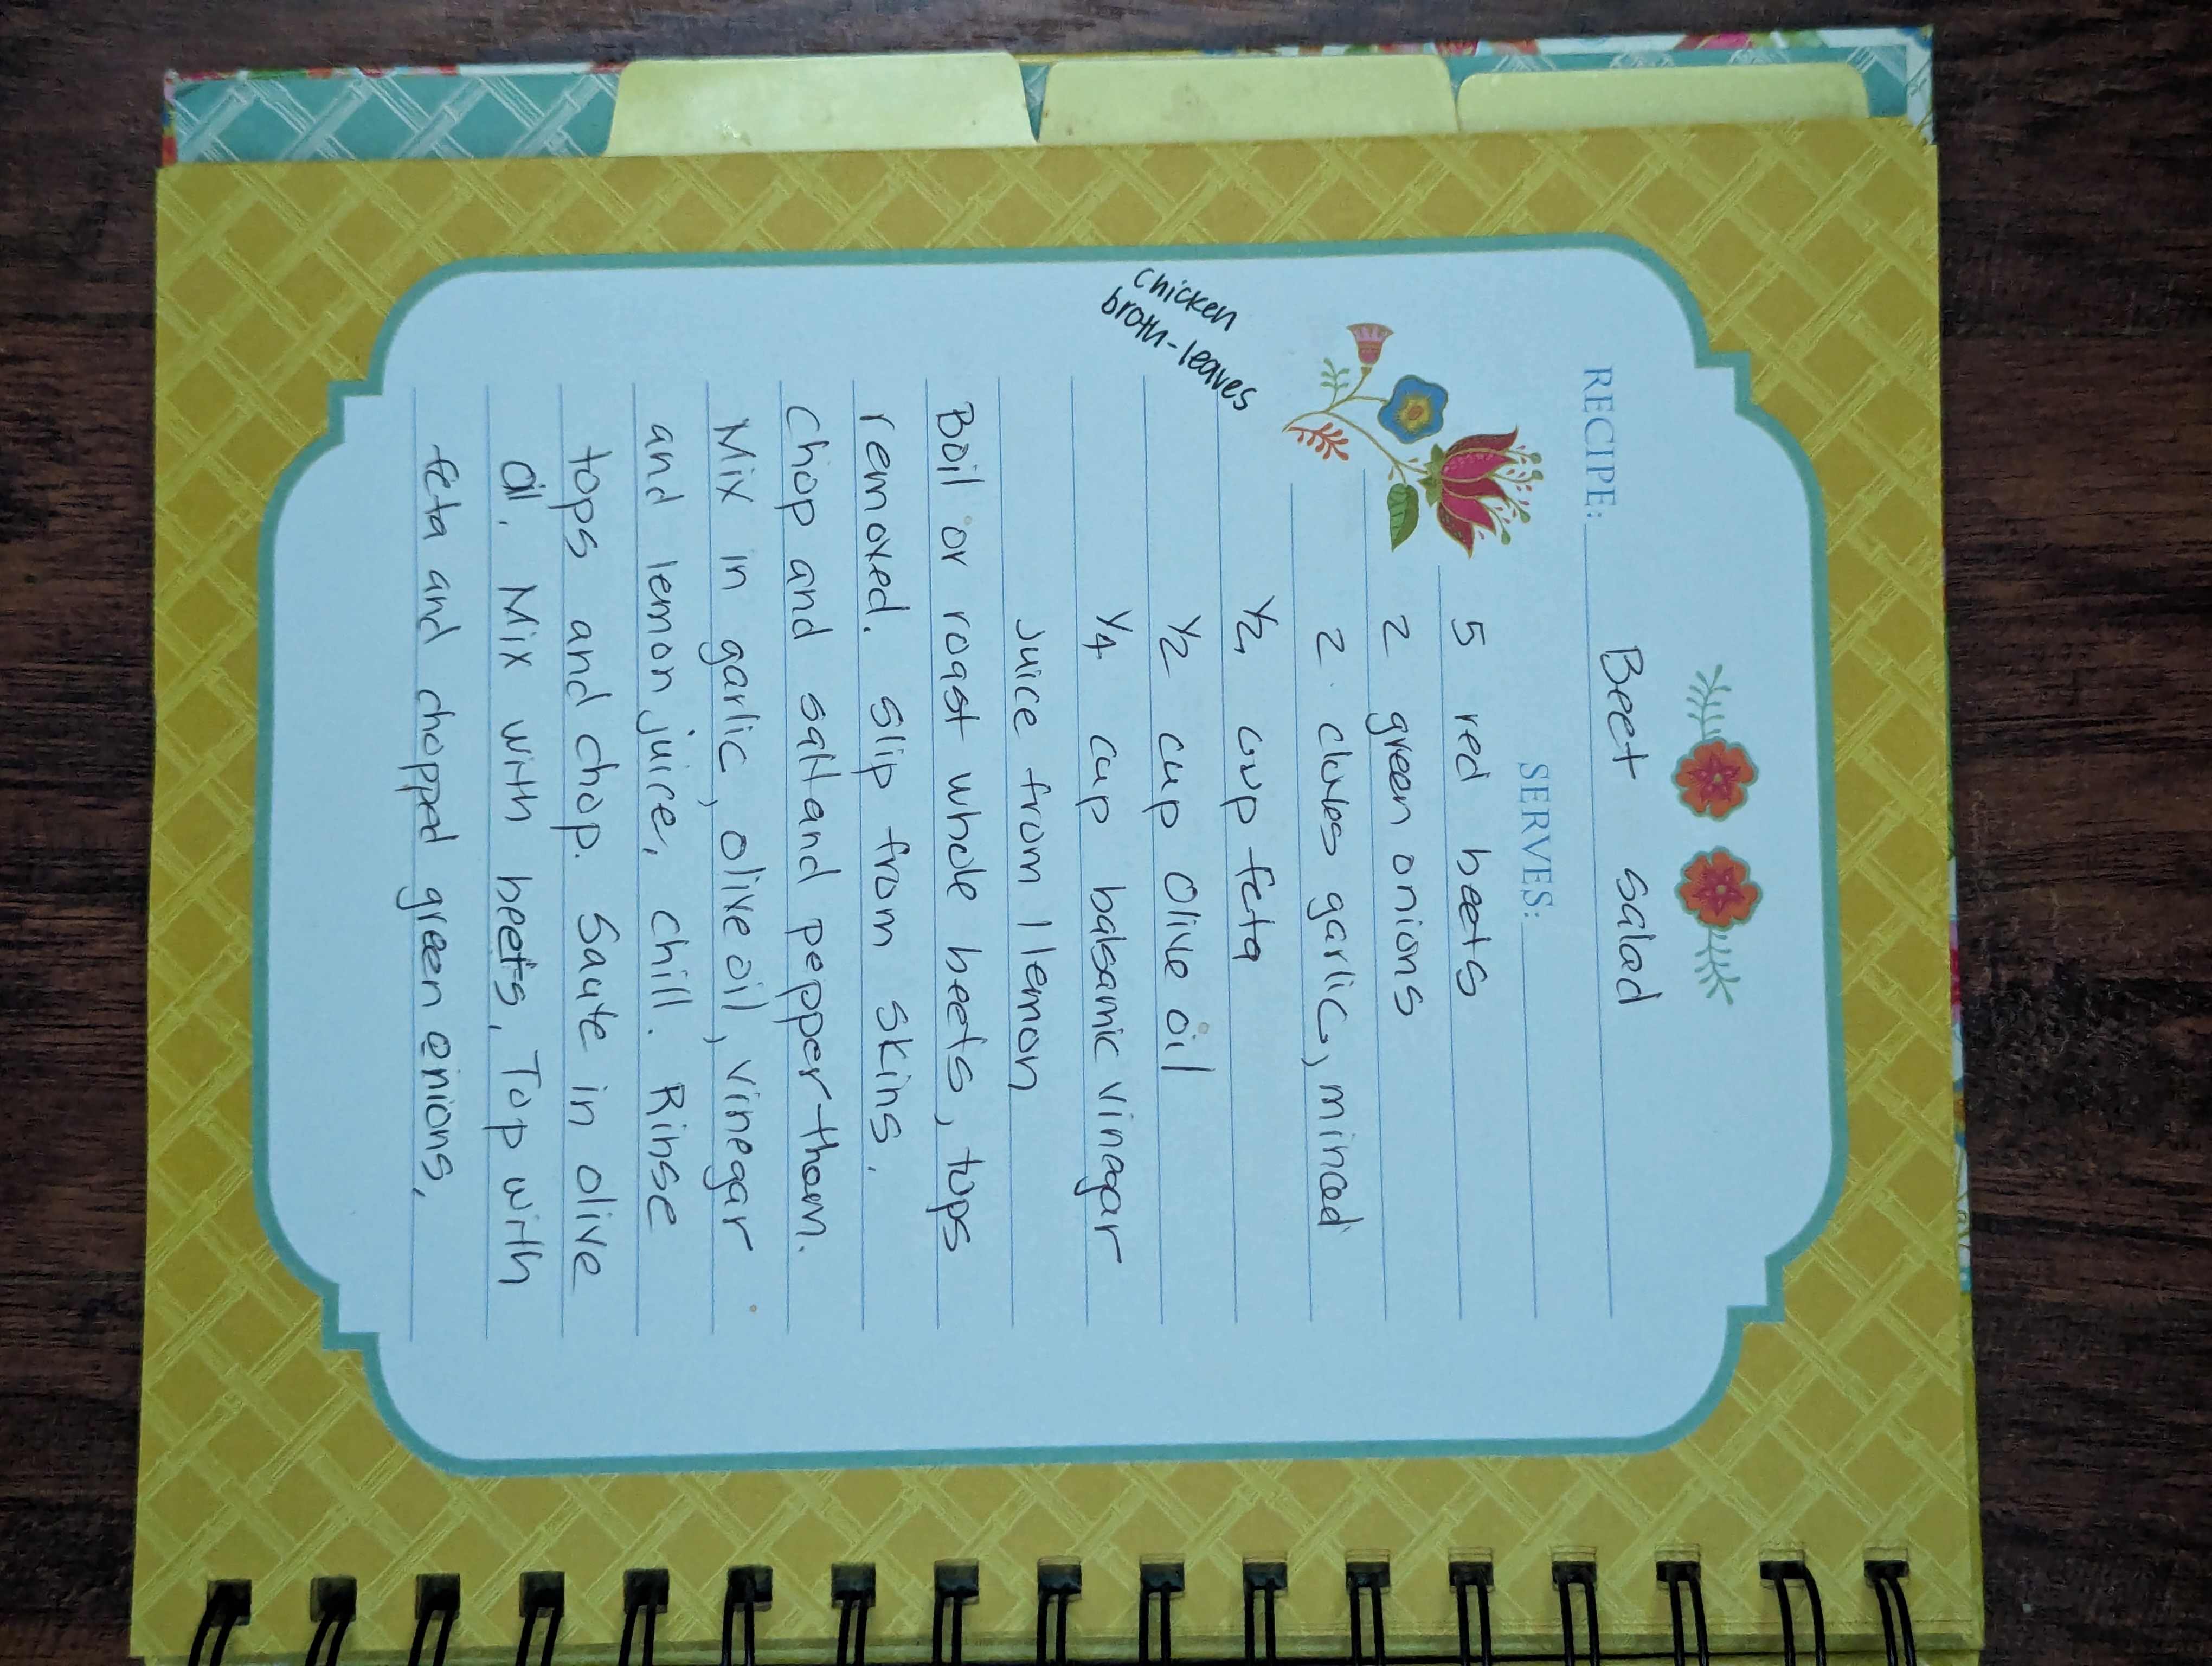 RECIPE: Beet salad
SERVES:
5 red beets
2 green onions
2 cloves garlic, minced
1/2 cup feta
1/2 cup olive oil
1/4 cup balsamic vinegar
juice from 1 lemon
chicken
broth-leaves
Boil or roast whole beets, tops
removed. Slip from skins.
Chop and salt and pepper them.
Mix in garlic, olive oil, vinegar
and lemon juice, chill. Rinse
tops and chop. Saute in olive
oil. Mix with beets, Top with
feta and chopped green onions,